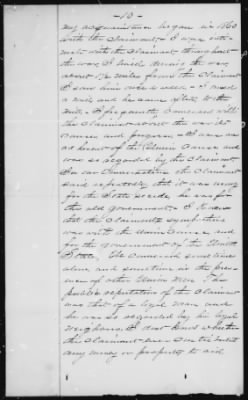 -10-
my acquaintance began in 1860
with the Claimant. I was inti-
mate with the Claimant throughout
the war. I lived during the war
about 1½ miles from the Claimant
I saw him once a week - I owned
a mill and he came often to the
mill. I frequently Conversed with
the Claimant about the war its
causes and progress. I was an
adherent of the Union Cause and
was so regarded by the Claimant.
In our Conversations the Claimant
said repeatedly that it was wrong
for the State to secede he was for
the old government. I Know
that the Claimants sympathies
was with the Union Cause and
for the government of the United
States. We Conversed sometimes
alone, and sometimes in the pres-
ence of other Union men. The
public reputation of the Claimant
was that of a loyal man and
he was so regarded by his loyal
neighbors. I dont Know whether
the Claimant ever Contributed
any money or property to aid